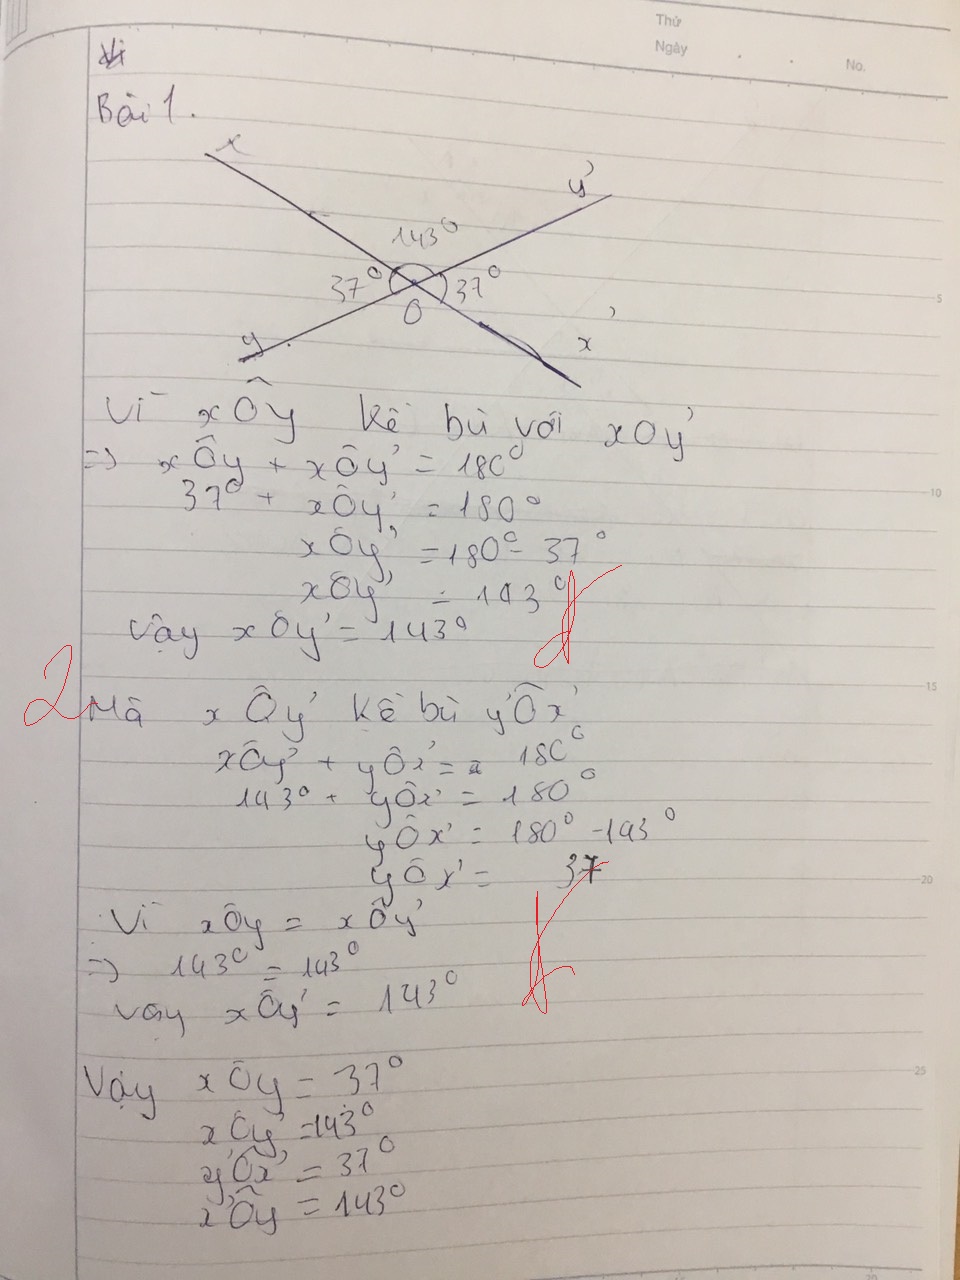 Thứ
Ngày . .
No.
Bài 1.
x
y'
143°
37°
37°
O
y
x'
5
Vì xÔy kề bù với xOy'
=> xÔy + xÔy' = 180°
37° + xÔy' = 180°
10
xÔy' = 180° - 37°
xÔy' = 143°
Vậy xÔy' = 143°
15
2
Mà xÔy' kề bù y'Ôx'
xÔy' + yÔx' = 180°
143° + yÔx' = 180°
yÔx' = 180° - 143°
yÔx' = 37
20
Vì xÔy = xÔy'
=> 143° = 143°
Vậy xÔy' = 143°
25
Vậy xÔy = 37°
xÔy' = 143°
y'Ôx' = 37°
x'Ôy = 143°